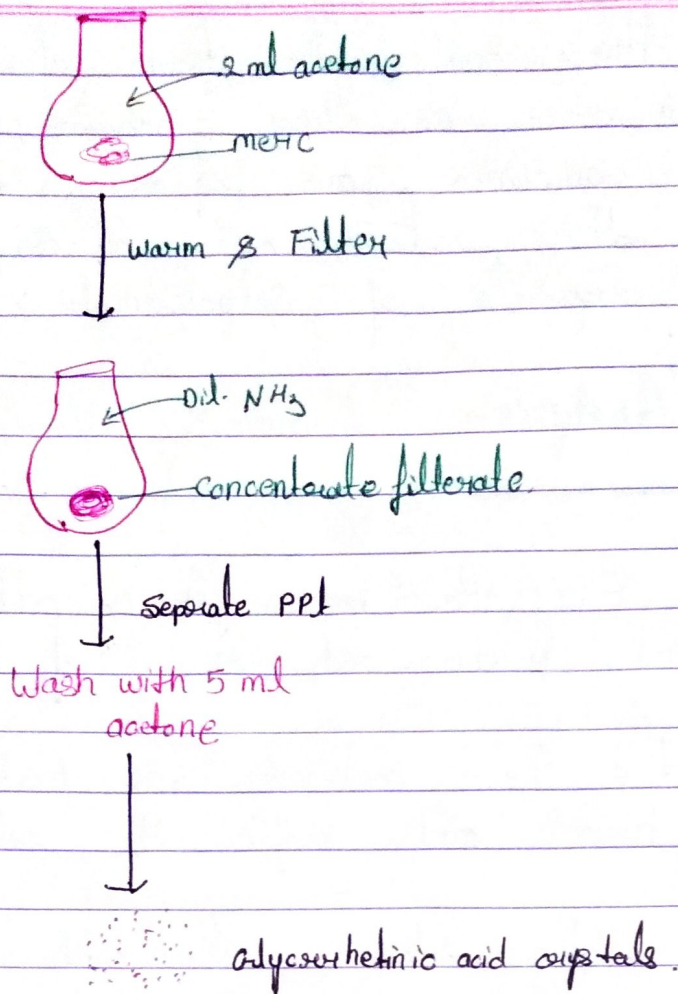 2 ml acetone
marc
warm & Filter
Dil. NH3
concentrate filterate.
Seperate ppt
Wash with 5 ml
acetone
Glycerrhetinic acid crystals.